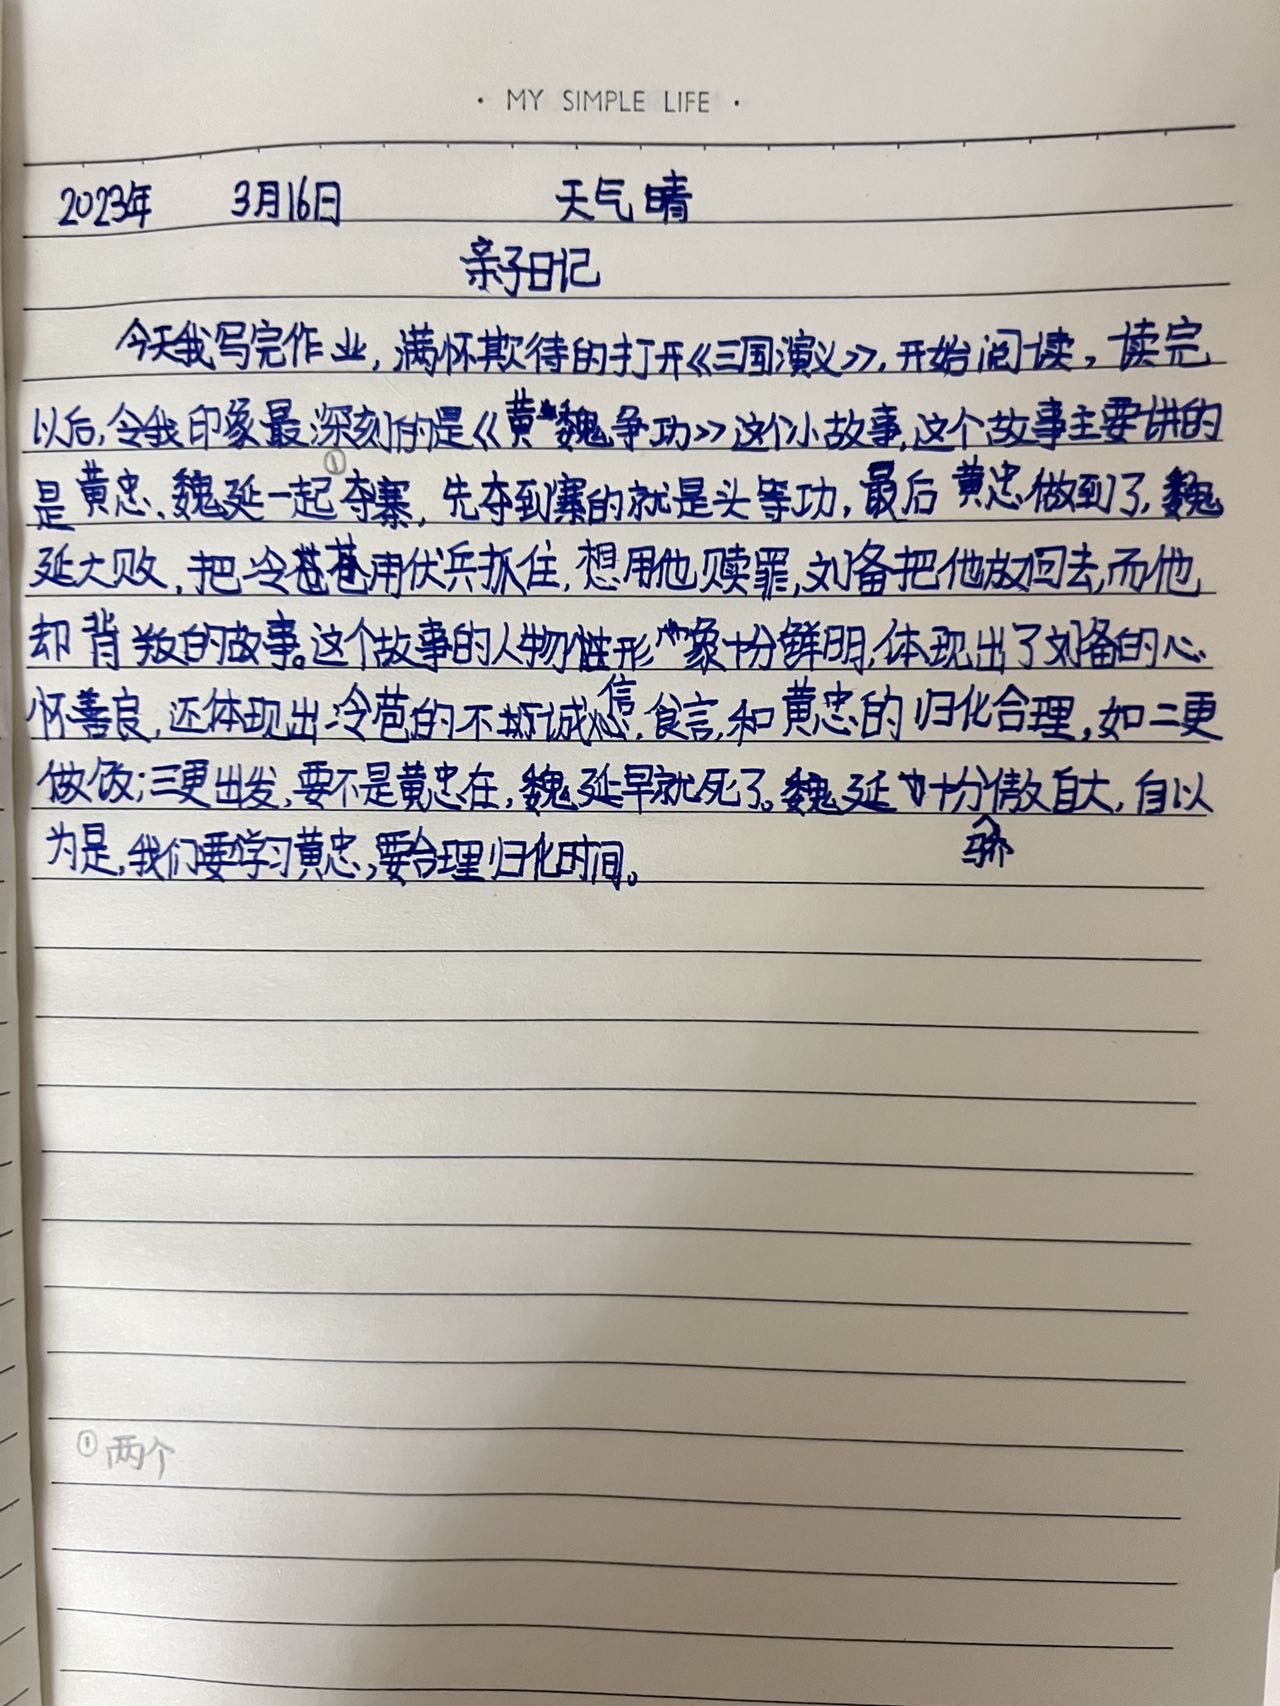 · MY SIMPLE LIFE ·
2023年 3月16日 天气晴
亲子日记
今天我写完作业,满怀欺待的打开《三国演义》,开始阅读,读完
以后,令我印象最深刻的是《黄魏争功》这个小故事,这个故事主要讲的
是黄忠、魏延一起①夺寨,先夺到寨的就是头等功,最后黄忠做到了,魏
延大败,把冷苞用伏兵抓住,想用他赎罪,刘备把他放回去,而他
却背叛的故事。这个故事的人物性形象十分鲜明,体现出了刘备的心
怀善良,还体现出冷苞的不诚信,食言,和黄忠的归化合理,如二更
做饭;三更出发,要不是黄忠在,魏延早就死了。魏延十分骄傲自大,自以
为是,我们要学习黄忠,要合理归化时间。
①两个